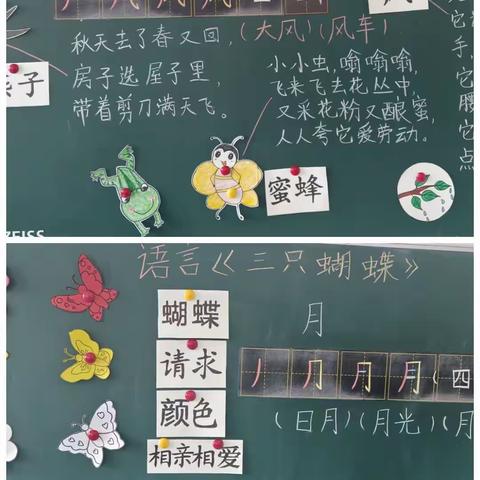 秋天去了春又回,
房子选屋子里,
带着剪刀满天飞。
(大风)(风车)
小小虫,嗡嗡嗡,
飞来飞去花丛中,
又采花粉又酿蜜,
人人夸它爱劳动。
燕子
蜜蜂
手,
它
腰
它
点
ZEISS
语言《三只蝴蝶》
蝴蝶
请求
颜色
相亲相爱
月
月
四
(日月)(月光)(月